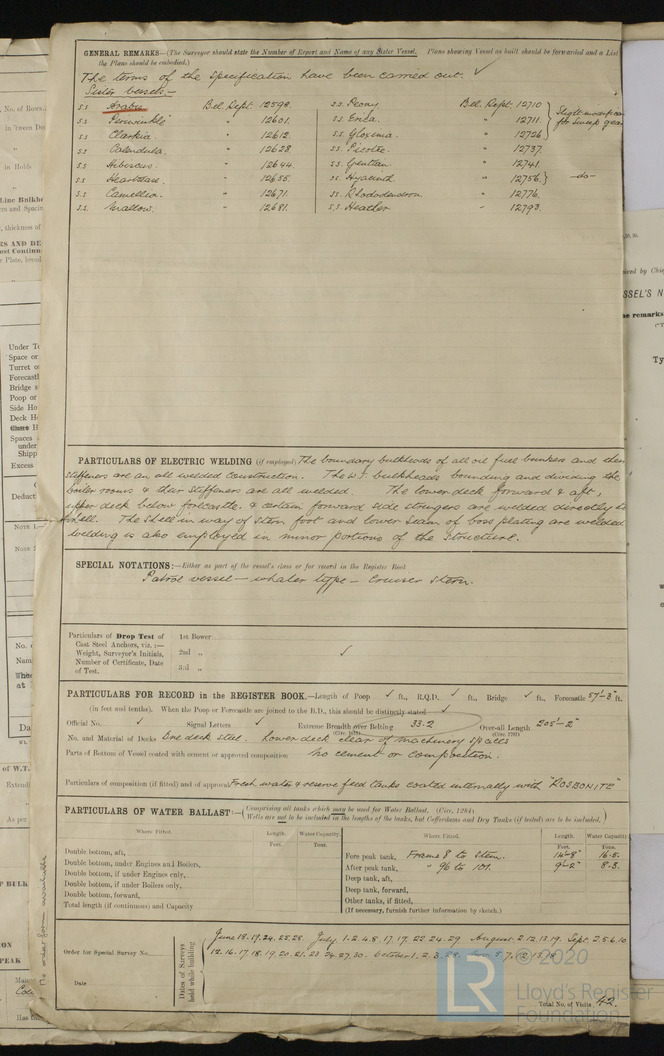 GENERAL REMARKS—(The Surveyor should state the Number of Report and Name of any Sister Vessel. Plans showing Vessel as built should be forwarded and a List
the Plans should be embodied.)
The terms of the specification have been carried out. ✓
Sister vessels:-
s.s. Arabis Bel. Rept. 12598. s.s. Peony Bel. Rept. 12710
s.s. Periwinkle " 12601. s.s. Erica. " 12711.
s.s. Clarkia. " 12612. s.s. Gloxinia. " 12726
s.s. Calendula. " 12628 s.s. Picotee. " 12737.
s.s. Hibiscus. " 12644. s.s. Gentian. " 12741.
s.s. Heartsease. " 12655. s.s. Hyacinth " 12756. -do-
s.s. Camellia. " 12671. s.s. Rhododendron. " 12776.
s.s. Mallow. " 12681. s.s. Heather " 12793.
PARTICULARS OF ELECTRIC WELDING (if employed) The boundary bulkheads of all oil fuel bunkers and their
stiffeners are an all welded construction. The W.T. bulkheads bounding and dividing the
boiler rooms & their stiffeners are all welded. The lower deck forward & aft,
upper deck below forecastle, & certain forward side stringers are welded directly to
shell. The shell in way of stern foot and lower seam of boss plating are welded.
Welding is also employed in minor portions of the structure.
SPECIAL NOTATIONS:—Either as part of the vessel's class or for record in the Register Book
Patrol vessel - whaler type - Cruiser Stern.
Particulars of Drop Test of
Cast Steel Anchors, viz. :—
Weight, Surveyor's Initials,
Number of Certificate, Date
of Test.
1st Bower
2nd " ✓
3rd "
PARTICULARS FOR RECORD in the REGISTER BOOK.—Length of Poop ✓ ft., R.Q.D. ✓ ft., Bridge ✓ ft., Forecastle 57'-3" ft.
(in feet and tenths). When the Poop or Forecastle are joined to the B.D., this should be distinctly stated ✓
Official No. ✓ Signal Letters ✓ Extreme Breadth over Belting 33.2 Over-all Length 205'-2"
No. and Material of Decks One deck steel. Lower deck clear of machinery spaces
Parts of Bottom of Vessel coated with cement or approved composition No cement or composition.
Particulars of composition (if fitted) and of approval Fresh water & reserve feed tanks coated internally with "ROSBONITE"
PARTICULARS OF WATER BALLAST:—(Comprising all tanks which may be used for Water Ballast. (Circ. 1284)
Wells are not to be included in the lengths of the tanks, but Cofferdams and Dry Tanks (if tested) are to be included.)
Where Fitted. Length. Water Capacity. Where Fitted. Length. Water Capacity
Feet. Tons. Feet. Tons.
Double bottom, aft,
Double bottom, under Engines and Boilers,
Double bottom, if under Engines only,
Double bottom, if under Boilers only,
Double bottom, forward,
Total length (if continuous) and Capacity
Fore peak tank, Frame 8 to Stem. 14'-8" 16-5.
After peak tank, " 96 to 101. 9'-2" 8-3.
Deep tank, aft,
Deep tank, forward,
Other tanks, if fitted,
(If necessary, furnish further information by sketch.)
Order for Special Survey No.
Date
Dates of Surveys
held while building
June 18.19.24.25.28. July 1.2.4.8.17.19.22.24.29 August 2.12.13.19. Sept. 2.5.6.10
Total No. of Visits 42.
© 2020
LR
Lloyd's Register
Foundation